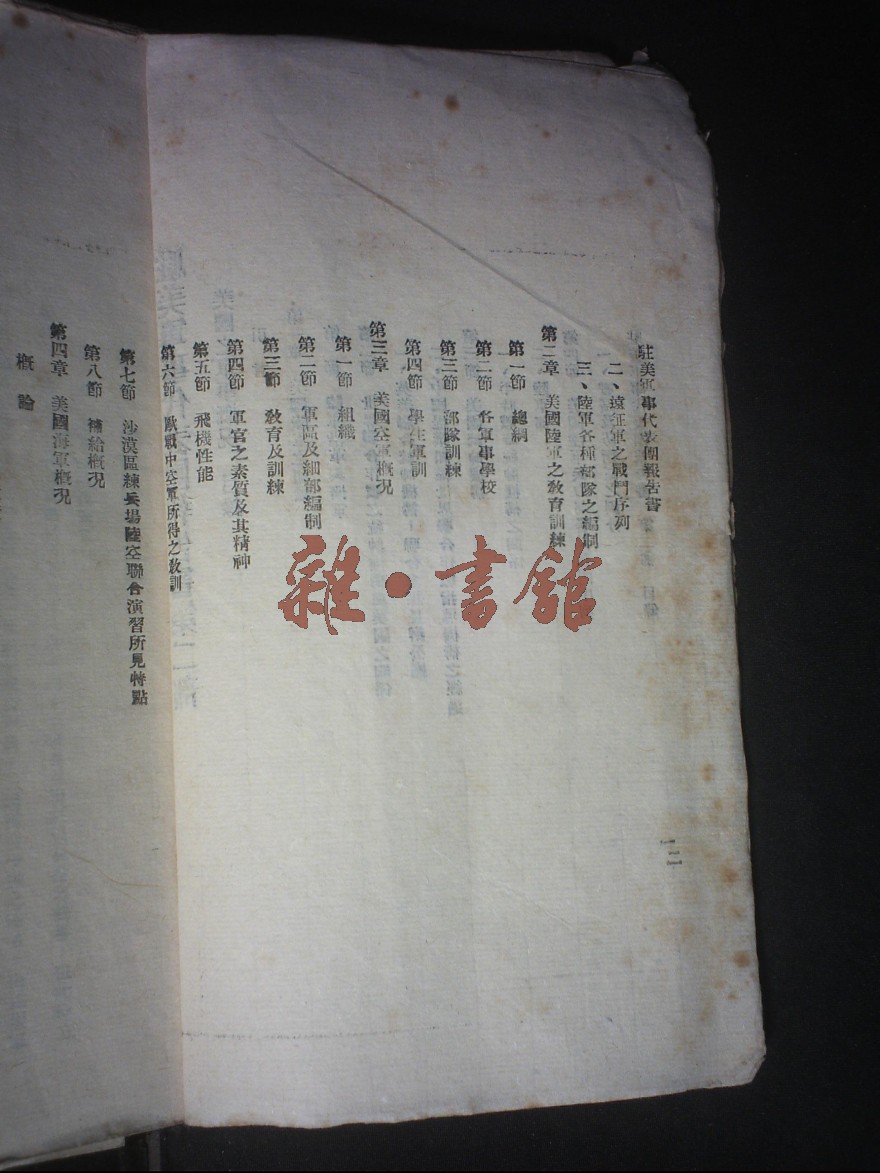 駐美軍事代表團報告書
二、遠征軍之戰鬥序列
三、陸軍各種部隊之編制
第二章 美國陸軍之敎育訓練
第一節 總綱
第二節 各軍事學校
第三節 部隊訓練
第四節 學生軍訓
第三章 美國空軍槪況
第一節 組織
第二節 軍區及細部編制
第三節 敎育及訓練
第四節 軍官之素質及其精神
第五節 飛機性能
第六節 歐戰中空軍所得之敎訓
第七節 沙漠區練兵場陸空聯合演習所見特點
第八節 補給槪況
第四章 美國海軍槪況
槪論
二
雜·書館